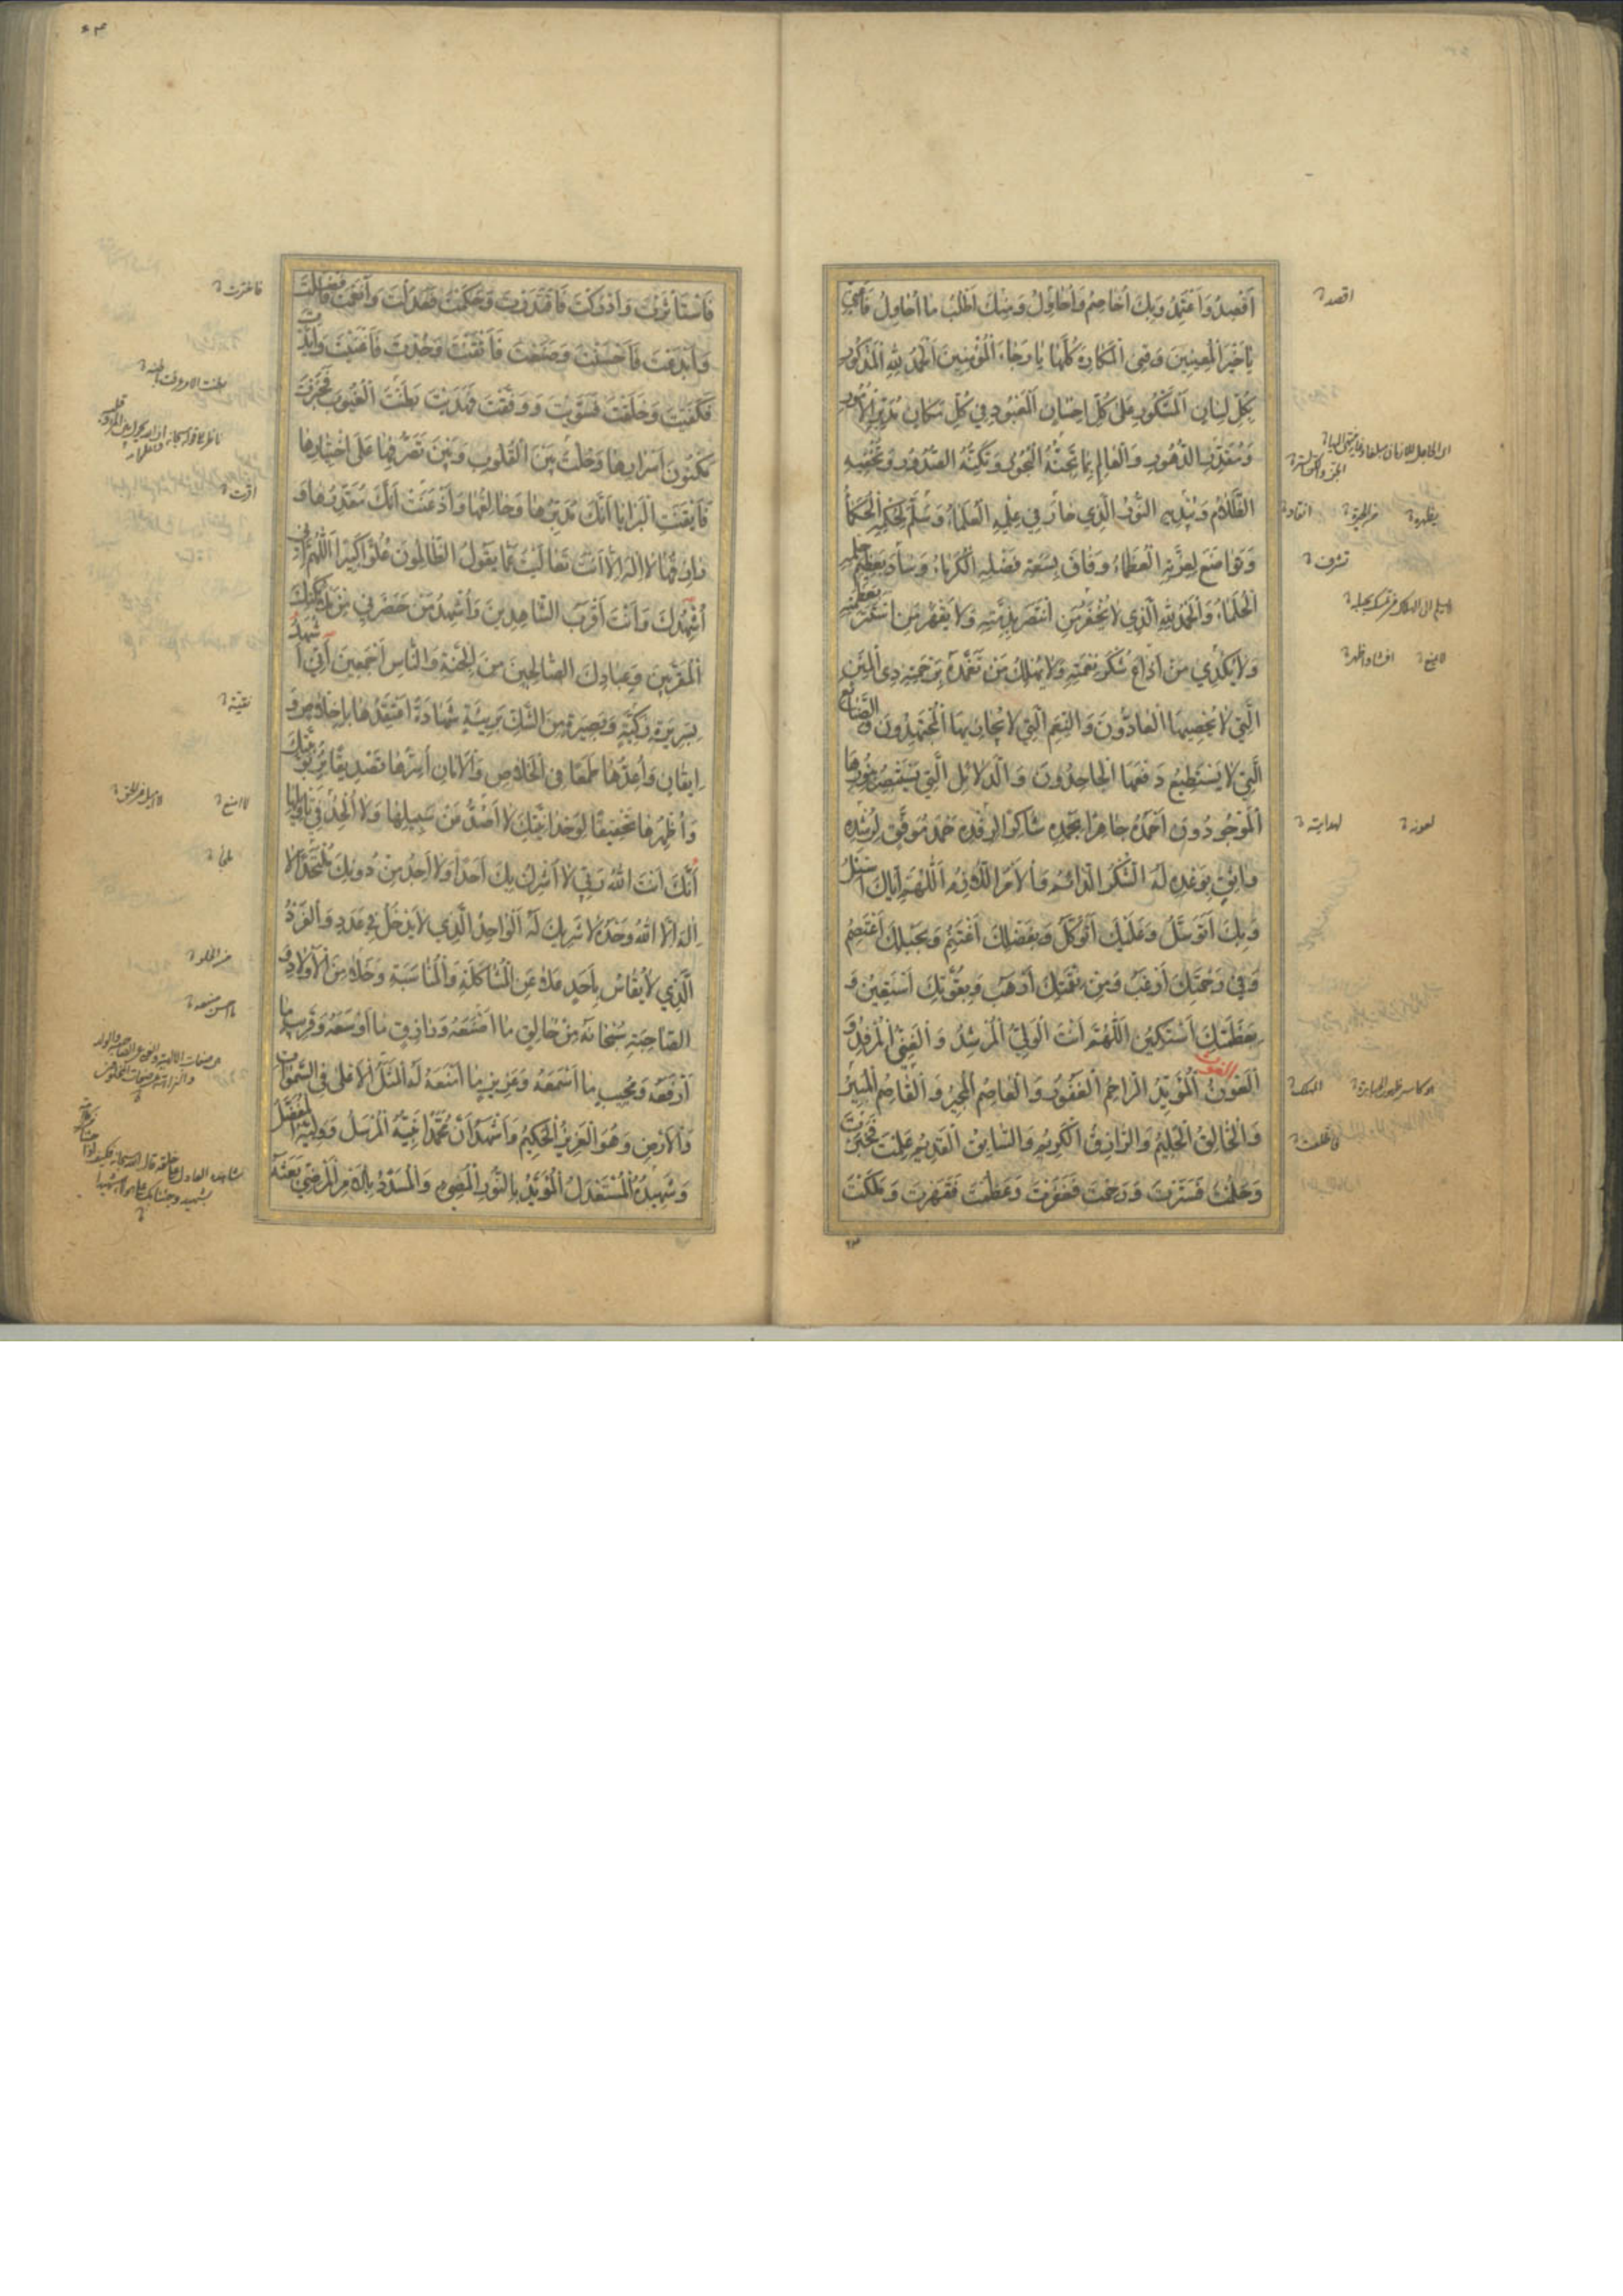 أَقْصِدُ وَأَعْتَمِدُ وَبِكَ أُخَاصِمُ وَأُحَاوِلُ وَمِنْكَ أَطْلُبُ مَا أُحَاوِلُ فَأَعِنِّي
يَا خَيْرَ الْمُعِينِينَ وَقِنِي الْمَكَارِهَ كُلَّهَا يَا رَجَاءَ الْمُؤْمِنِينَ اَلْحَمْدُ لِلّٰهِ الْمَذْكُورِ
بِكُلِّ لِسَانٍ اَلْمَشْكُورِ عَلَى كُلِّ إِحْسَانٍ اَلْمَعْبُودِ فِي كُلِّ مَكَانٍ مُدَبِّرِ الْأُمُورِ
وَمُقَدِّرِ الدُّهُورِ وَالْعَالِمِ بِمَا تُجِنُّهُ الْبُحُورُ وَتُكِنُّهُ الصُّدُورُ وَتُخْفِيهِ
الظَّلَامُ وَيُبْدِيهِ النُّورُ الَّذِي حَارَ فِي عِلْمِهِ الْعُلَمَاءُ وَسَلَّمَ لِحُكْمِهِ الْحُكَمَاءُ
وَتَوَاضَعَ لِعِزَّتِهِ الْعُظَمَاءُ وَفَاقَ بِسَعَةِ فَضْلِهِ الْكُرَمَاءَ وَسَادَ بِعَظِيمِ حِلْمِهِ
الْحُلَمَاءَ وَالْحَمْدُ لِلّٰهِ الَّذِي لَا يُخْفَرُ مَنِ انْتَصَرَ بِذِمَّتِهِ وَلَا يُقْهَرُ مَنِ اسْتَتَرَ بِعَظَمَتِهِ
وَلَا يُكْدِي مَنْ أَذَاعَ شُكْرَ نِعْمَتِهِ وَلَا يَهْلِكُ مَنْ تَغَمَّدَهُ بِرَحْمَتِهِ ذِي الْمِنَنِ
الَّتِي لَا يُحْصِيهَا الْعَادُّونَ وَالنِّعَمِ الَّتِي لَا يُجَازِيهَا الْمُجْتَهِدُونَ وَالصَّنَائِعِ
الَّتِي لَا يَسْتَطِيعُ دَفْعَهَا الْجَاحِدُونَ وَالدَّلَائِلِ الَّتِي يَسْتَبْصِرُ بِنُورِهَا
الْمَوْجُودُونَ أَحْمَدُهُ جَاهِرًا بِحَمْدِهِ شَاكِرًا لِرِفْدِهِ حَمْدَ مُوَفَّقٍ لِرُشْدِهِ
وَاثِقٍ بِوَعْدِهِ لَهُ الشُّكْرُ الدَّائِمُ وَالْأَمْرُ اللَّازِمُ اَللّٰهُمَّ إِيَّاكَ أَسْئَلُ
وَبِكَ أَتَوَسَّلُ وَعَلَيْكَ أَتَوَكَّلُ وَبِفَضْلِكَ أَغْتَنِمُ وَبِحَبْلِكَ أَعْتَصِمُ
وَفِي رَحْمَتِكَ أَرْغَبُ وَمِنْ نِقْمَتِكَ أَرْهَبُ وَبِقُوَّتِكَ أَسْتَعِينُ وَ
بِعَظَمَتِكَ أَسْتَكِينُ اَللّٰهُمَّ أَنْتَ الْوَلِيُّ الْمُرْشِدُ وَالْغَنِيُّ الْمُرْفِدُ وَ
الْعَوْنُ الْمُؤَيِّدُ الرَّاحِمُ الْغَفُورُ وَالْعَاصِمُ الْمُجِيرُ وَالْقَاصِمُ الْمُبِيرُ
وَالْخَالِقُ الْحَلِيمُ وَالرَّازِقُ الْكَرِيمُ وَالسَّابِقُ الْقَدِيمُ عَلِمْتَ فَخَبَرْتَ
وَحَلُمْتَ فَسَتَرْتَ وَرَحِمْتَ فَغَفَرْتَ وَعَظُمْتَ فَقَهَرْتَ وَمَلَكْتَ
اقصد
فَاسْتَأْثَرْتَ وَأَدْرَكْتَ فَاقْتَدَرْتَ وَحَكَمْتَ فَعَدَلْتَ وَأَنْعَمْتَ فَأَفْضَلْتَ
وَأَبْدَعْتَ فَأَحْسَنْتَ وَصَنَعْتَ فَأَتْقَنْتَ وَجُدْتَ فَأَغْنَيْتَ وَأَيَّدْتَ
فَكَفَيْتَ وَخَلَقْتَ فَسَوَّيْتَ وَوَفَّقْتَ فَهَدَيْتَ بَطَنْتَ الْغُيُوبَ فَخَبَرْتَ
مَكْنُونَ أَسْرَارِهَا وَحُلْتَ بَيْنَ الْقُلُوبِ وَبَيْنَ تَصَرُّفِهَا عَلَى اخْتِيَارِهَا
فَأَيْقَنَتِ الْبَرَايَا أَنَّكَ مُدَبِّرُهَا وَخَالِقُهَا وَأَذْعَنَتْ أَنَّكَ مُقَدِّرُهَا وَ
رَازِقُهَا لَا إِلٰهَ إِلَّا أَنْتَ تَعَالَيْتَ عَمَّا يَقُولُ الظَّالِمُونَ عُلُوًّا كَبِيرًا اَللّٰهُمَّ إِنِّي
أُشْهِدُكَ وَأَنْتَ أَقْرَبُ الشَّاهِدِينَ وَأُشْهِدُ مَنْ حَضَرَنِي مِنْ مَلَائِكَتِكَ
الْمُقَرَّبِينَ وَعِبَادِكَ الصَّالِحِينَ مِنَ الْجِنَّةِ وَالنَّاسِ أَجْمَعِينَ أَنِّي أَشْهَدُ
بِسَرِيرَةٍ زَكِيَّةٍ وَبَصِيرَةٍ مِنَ الشَّكِّ بَرِيئَةٍ شَهَادَةً أَعْتَقِدُهَا بِإِخْلَاصٍ وَ
إِيقَانٍ وَأُعِدُّهَا طَمَعًا فِي الْخَلَاصِ وَالْأَمَانِ أُسِرُّهَا تَصْدِيقًا بِرُبُوبِيَّتِكَ
وَأُظْهِرُهَا تَحْقِيقًا لِوَحْدَانِيَّتِكَ لَا أَصُدُّ عَنْ سَبِيلِهَا وَلَا أُلْحِدُ فِي تَأْوِيلِهَا
أَنَّكَ أَنْتَ اللّٰهُ رَبِّي لَا أُشْرِكُ بِكَ أَحَدًا وَلَا أَجِدُ مِنْ دُونِكَ مُلْتَحَدًا لَا
إِلٰهَ إِلَّا اللّٰهُ وَحْدَهُ لَا شَرِيكَ لَهُ الْوَاحِدُ الَّذِي لَا يَدْخُلُ فِي عَدَدٍ وَالْفَرْدُ
الَّذِي لَا يُقَاسُ بِأَحَدٍ عَلَا عَنِ الْمُشَاكَلَةِ وَالْمُنَاسَبَةِ وَخَلَا مِنَ الْأَوْلَادِ وَ
الصَّاحِبَةِ سُبْحَانَهُ مِنْ خَالِقٍ مَا أَصْنَعَهُ وَرَازِقٍ مَا أَوْسَعَهُ وَقَرِيبٍ مَا
أَرْفَعَهُ وَمُجِيبٍ مَا أَسْمَعَهُ وَعَزِيزٍ مَا أَمْنَعَهُ لَهُ الْمَثَلُ الْأَعْلَى فِي السَّمٰوَاتِ
وَالْأَرْضِ وَهُوَ الْعَزِيزُ الْحَكِيمُ وَأَشْهَدُ أَنَّ مُحَمَّدًا نَبِيُّهُ الْمُرْسَلُ وَوَلِيُّهُ الْمُفَضَّلُ
وَشَهِيدُهُ الْمُسْتَعْدَلُ الْمُؤَيَّدُ بِالنُّورِ الْمُضِيءِ وَالْمُسَدَّدُ بِالْأَمْرِ الْمَرْضِيِّ بَعَثَهُ